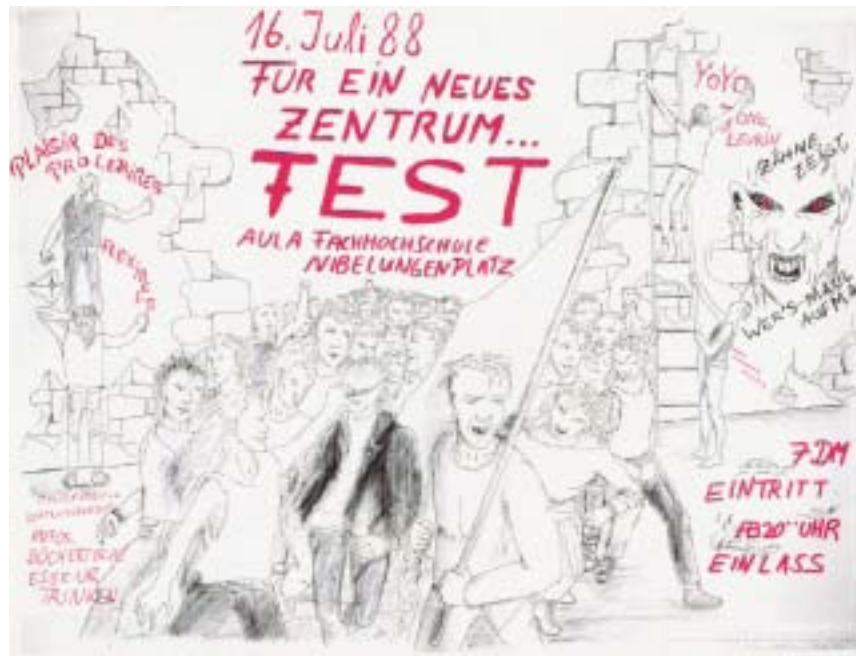 16. Juli 88
FÜR EIN NEUES
ZENTRUM...
FEST
AULA FACHHOCHSCHULE
NIBELUNGENPLATZ
PLAISIR DES
PROLETAIRES
FLEXIBLE
YOYO
ZÄHNE
ZEIGT,
WER'S MAUL
AUFMA
7 DM
EINTRITT
AB 20°° UHR
EINLASS
INFOS
BÜCHERTISCHE
ESSE UR
TRINKEN